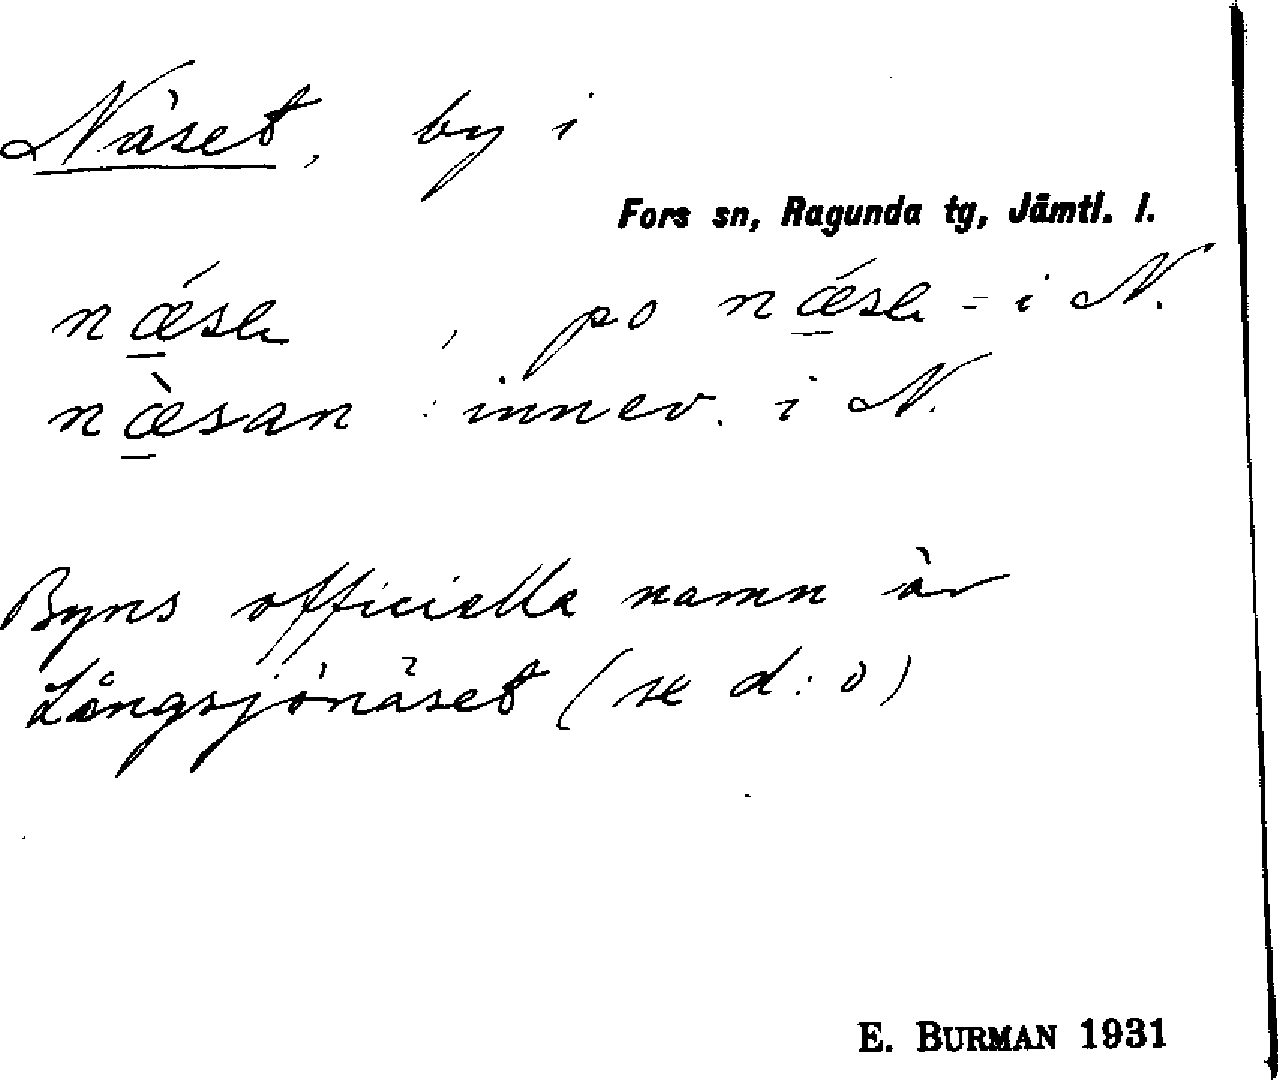 Näset, by i
Fors sn, Ragunda tg, Jämtl. l.
nǽ̱sɐ, po nǽ̱sɐ = i N.
næ̱̀san : innev. i N.
Byns officiella namn är
Långsjönäset (se d:o)
E. BURMAN 1931